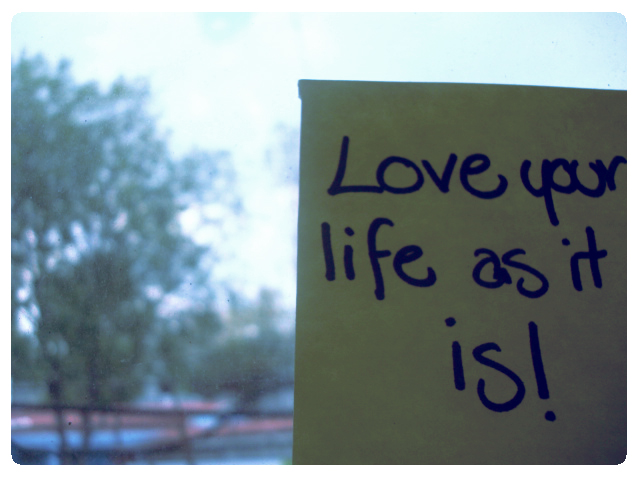 Love your
life as it
is!